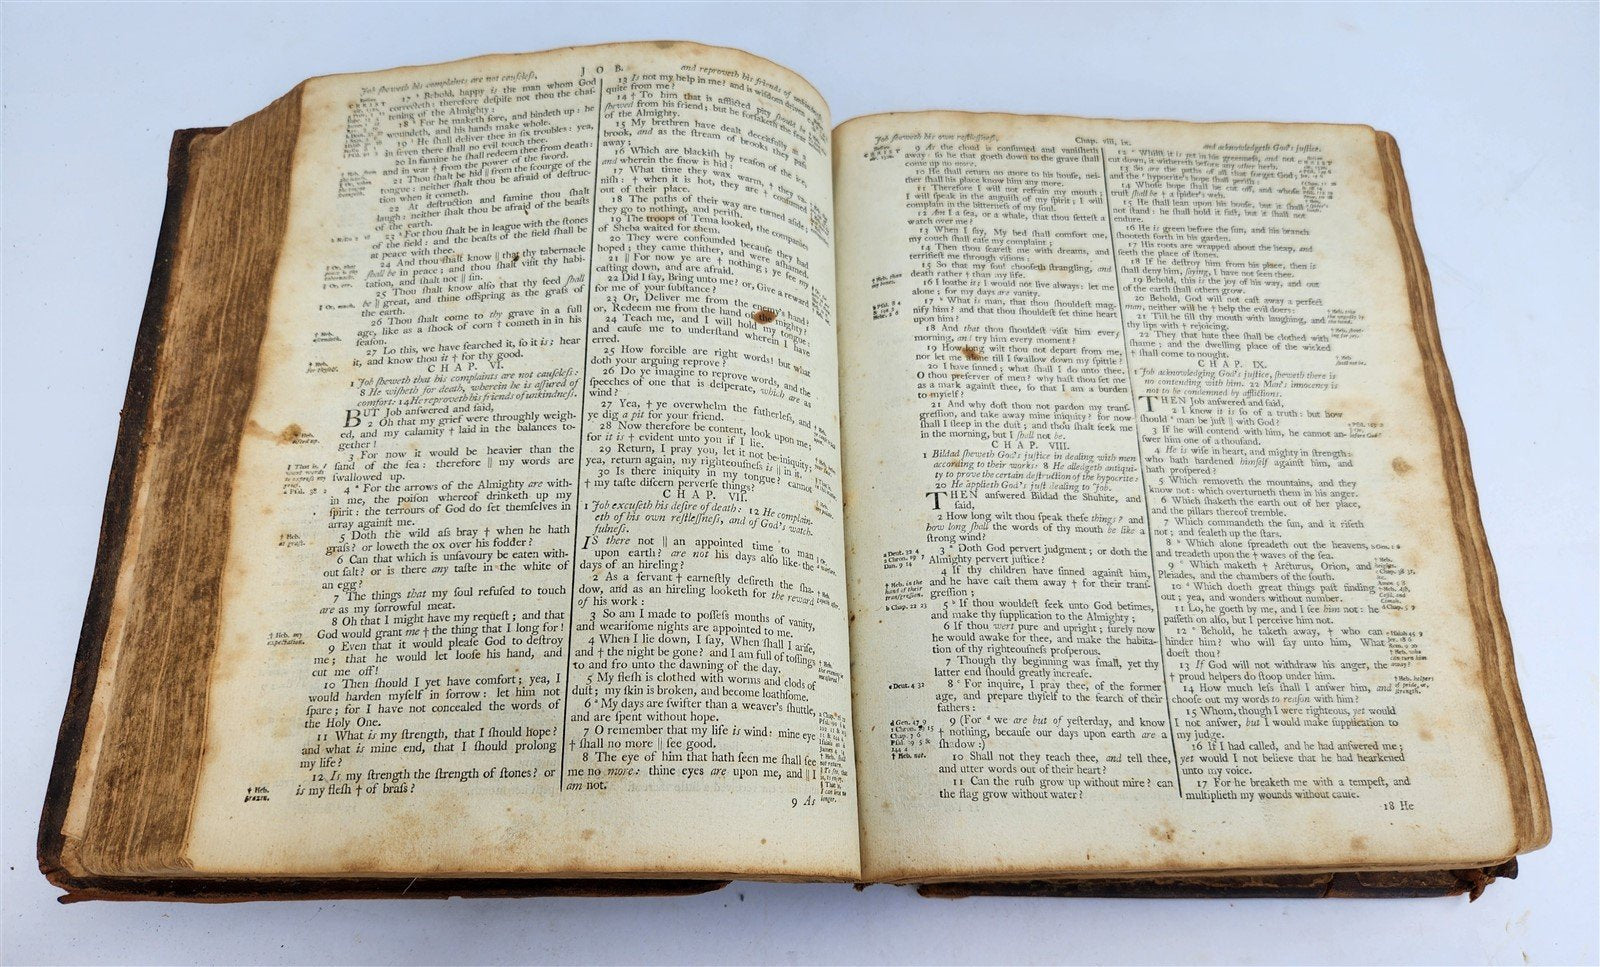 Job sheweth his complaints are not causeless,
J O B.
and reproveth his friends of unkindness.
17 Behold, happy is the man whom God
correcteth: therefore despise not thou the chas-
tening of the Almighty:
18 For he maketh sore, and bindeth up: he
woundeth, and his hands make whole.
19 He shall deliver thee in six troubles: yea,
in seven there shall no evil touch thee.
20 In famine he shall redeem thee from death:
and in war † from the power of the sword.
21 Thou shalt be hid || from the scourge of the
tongue: neither shalt thou be afraid of destruc-
tion when it cometh.
22 At destruction and famine thou shalt
laugh: neither shalt thou be afraid of the beasts
of the earth.
23 For thou shalt be in league with the stones
of the field: and the beasts of the field shall be
at peace with thee.
24 And thou shalt know || that thy tabernacle
shall be in peace; and thou shalt visit thy habi-
tation, and shalt not || sin.
25 Thou shalt know also that thy seed shall
be || great, and thine offspring as the grass of
the earth.
26 Thou shalt come to thy grave in a full
age, like as a shock of corn † cometh in in his
season.
27 Lo this, we have searched it, so it is; hear
it, and know thou it † for thy good.
C H A P. VI.
1 Job sheweth that his complaints are not causeless:
8 He wisheth for death, wherein he is assured of
comfort: 14 He reproveth his friends of unkindness.
BUT Job answered and said,
2 Oh that my grief were throughly weigh-
ed, and my calamity † laid in the balances to-
gether!
3 For now it would be heavier than the
sand of the sea: therefore || my words are
swallowed up.
4 For the arrows of the Almighty are with-
in me, the poison whereof drinketh up my
spirit: the terrours of God do set themselves in
array against me.
5 Doth the wild ass bray † when he hath
grass? or loweth the ox over his fodder?
6 Can that which is unsavoury be eaten with-
out salt? or is there any taste in the white of
an egg?
7 The things that my soul refused to touch
are as my sorrowful meat.
8 Oh that I might have my request; and that
God would grant me † the thing that I long for!
9 Even that it would please God to destroy
me; that he would let loose his hand, and
cut me off!
10 Then should I yet have comfort; yea, I
would harden myself in sorrow: let him not
spare; for I have not concealed the words of
the Holy One.
11 What is my strength, that I should hope?
and what is mine end, that I should prolong
my life?
12 Is my strength the strength of stones? or
is my flesh † of brass?
13 Is not my help in me? and is wisdom driven
quite from me?
14 † To him that is afflicted pity should be
shewed from his friend; but he forsaketh the fear
of the Almighty.
15 My brethren have dealt deceitfully as a
brook, and as the stream of brooks they pass
away;
16 Which are blackish by reason of the ice,
and wherein the snow is hid:
17 What time they wax warm, † they va-
nish: † when it is hot, they are † consumed
out of their place.
18 The paths of their way are turned aside;
they go to nothing, and perish.
19 The troops of Tema looked, the companies
of Sheba waited for them.
20 They were confounded because they had
hoped; they came thither, and were ashamed.
21 || For now ye are † nothing; ye see my
casting down, and are afraid.
22 Did I say, Bring unto me? or, Give a reward
for me of your substance?
23 Or, Deliver me from the enemy's hand?
or, Redeem me from the hand of the mighty?
24 Teach me, and I will hold my tongue:
and cause me to understand wherein I have
erred.
25 How forcible are right words! but what
doth your arguing reprove?
26 Do ye imagine to reprove words, and the
speeches of one that is desperate, which are as
wind?
27 Yea, † ye overwhelm the fatherless, and
ye dig a pit for your friend.
28 Now therefore be content, look upon me;
for it is † evident unto you if I lie.
29 Return, I pray you, let it not be iniquity;
yea, return again, my righteousness is || in it.
30 Is there iniquity in my tongue? cannot
† my taste discern perverse things?
C H A P. VII.
1 Job excuseth his desire of death: 12 He complain-
eth of his own restlessness, and of God's watch-
fulness.
IS there not || an appointed time to man
upon earth? are not his days also like the
days of an hireling?
2 As a servant † earnestly desireth the sha-
dow, and as an hireling looketh for the reward
of his work:
3 So am I made to possess months of vanity,
and wearisome nights are appointed to me.
4 When I lie down, I say, When shall I arise,
and † the night be gone? and I am full of tossings
to and fro unto the dawning of the day.
5 My flesh is clothed with worms and clods of
dust; my skin is broken, and become loathsome.
6 My days are swifter than a weaver's shuttle,
and are spent without hope.
7 O remember that my life is wind: mine eye
† shall no more || see good.
8 The eye of him that hath seen me shall see
me no more: thine eyes are upon me, and || I
am not.
9 As
Job sheweth his own restlessness,
Chap. viii, ix.
and acknowledgeth God's justice.
9 As the cloud is consumed and vanisheth
away: so he that goeth down to the grave shall
come up no more.
10 He shall return no more to his house, nei-
ther shall his place know him any more.
11 Therefore I will not refrain my mouth;
I will speak in the anguish of my spirit; I will
complain in the bitterness of my soul.
12 Am I a sea, or a whale, that thou settest a
watch over me?
13 When I say, My bed shall comfort me,
my couch shall ease my complaint;
14 Then thou scarest me with dreams, and
terrifiest me through visions:
15 So that my soul chooseth strangling, and
death rather † than my life.
16 I loathe it; I would not live always: let me
alone; for my days are vanity.
17 What is man, that thou shouldest mag-
nify him? and that thou shouldest set thine heart
upon him?
18 And that thou shouldest visit him every
morning, and try him every moment?
19 How long wilt thou not depart from me,
nor let me alone till I swallow down my spittle?
20 I have sinned; what shall I do unto thee,
O thou preserver of men? why hast thou set me
as a mark against thee, so that I am a burden
to myself?
21 And why dost thou not pardon my trans-
gression, and take away mine iniquity? for now
shall I sleep in the dust; and thou shalt seek me
in the morning, but I shall not be.
C H A P. VIII.
1 Bildad sheweth God's justice in dealing with men
according to their works: 8 He alledgeth antiqui-
ty to prove the certain destruction of the hypocrite:
20 He applieth God's just dealing to Job.
THEN answered Bildad the Shuhite, and
said,
2 How long wilt thou speak these things? and
how long shall the words of thy mouth be like a
strong wind?
3 Doth God pervert judgment; or doth the
Almighty pervert justice?
4 If thy children have sinned against him,
and he have cast them away † for their trans-
gression;
5 If thou wouldest seek unto God betimes,
and make thy supplication to the Almighty;
6 If thou wert pure and upright; surely now
he would awake for thee, and make the habita-
tion of thy righteousness prosperous.
7 Though thy beginning was small, yet thy
latter end should greatly increase.
8 For inquire, I pray thee, of the former
age, and prepare thyself to the search of their
fathers:
9 (For we are but of yesterday, and know
† nothing, because our days upon earth are a
shadow:)
10 Shall not they teach thee, and tell thee,
and utter words out of their heart?
11 Can the rush grow up without mire? can
the flag grow without water?
12 Whilst it is yet in his greenness, and not
cut down, it withereth before any other herb.
13 So are the paths of all that forget God;
and the hypocrite's hope shall perish:
14 Whose hope shall be cut off, and whose
trust shall be † a spider's web.
15 He shall lean upon his house, but it shall
not stand: he shall hold it fast, but it shall not
endure.
16 He is green before the sun, and his branch
shooteth forth in his garden.
17 His roots are wrapped about the heap, and
seeth the place of stones.
18 If he destroy him from his place, then it
shall deny him, saying, I have not seen thee.
19 Behold, this is the joy of his way, and out
of the earth shall others grow.
20 Behold, God will not cast away a perfect
man, neither will he † help the evil doers:
21 Till he fill thy mouth with laughing, and
thy lips with † rejoicing.
22 They that hate thee shall be clothed with
shame; and the dwelling place of the wicked
† shall come to nought.
C H A P. IX.
1 Job acknowledging God's justice, sheweth there is
no contending with him. 22 Man's innocency is
not to be condemned by afflictions.
THEN Job answered and said,
2 I know it is so of a truth: but how
should man be just || with God?
3 If he will contend with him, he cannot an-
swer him one of a thousand.
4 He is wise in heart, and mighty in strength:
who hath hardened himself against him, and
hath prospered?
5 Which removeth the mountains, and they
know not: which overturneth them in his anger.
6 Which shaketh the earth out of her place,
and the pillars thereof tremble.
7 Which commandeth the sun, and it riseth
not; and sealeth up the stars.
8 Which alone spreadeth out the heavens,
and treadeth upon the † waves of the sea.
9 Which maketh † Arcturus, Orion, and
Pleiades, and the chambers of the south.
10 Which doeth great things past finding
out; yea, and wonders without number.
11 Lo, he goeth by me, and I see him not: he
passeth on also, but I perceive him not.
12 Behold, he taketh away, † who can
hinder him? who will say unto him, What
doest thou?
13 If God will not withdraw his anger, the
† proud helpers do stoop under him.
14 How much less shall I answer him, and
choose out my words to reason with him?
15 Whom, though I were righteous, yet would
I not answer, but I would make supplication to
my judge.
16 If I had called, and he had answered me;
yet would I not believe that he had hearkened
unto my voice.
17 For he breaketh me with a tempest, and
multiplieth my wounds without cause.
18 He